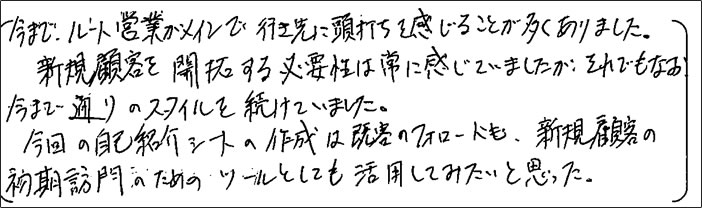 今まで、ルート営業がメインで行き先に頭打ちを感じることが多くありました。
新規顧客を開拓する必要性は常に感じていましたが、それでもなお
今まで通りのスタイルを続けていました。
今回の自己紹介シートの作成は既客のフォロードも、新規顧客の
初期訪問のためのツールとしても活用してみたいと思った。